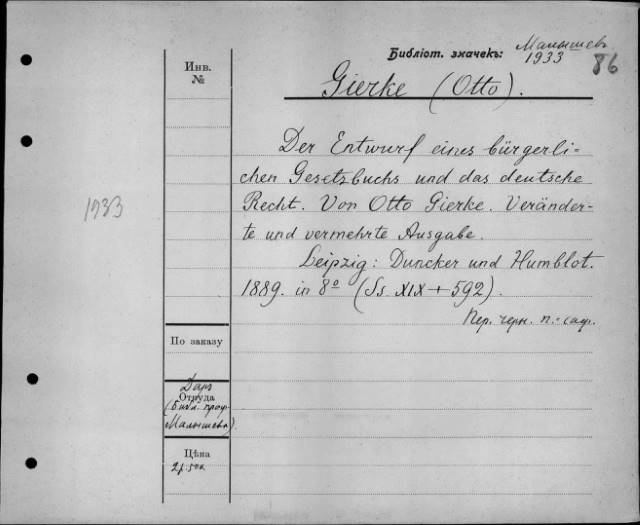 Библіот. значекъ: Малышевъ
1933 86
Инв.
№
Gierke (Otto).
Der Entwurf eines bürgerli-
chen Gesetzbuchs und das deutsche
Recht. Von Otto Gierke. Veränder-
te und vermehrte Ausgabe.
Leipzig: Duncker und Humblot.
1889. in 8º (Ss. XIX + 592).
1933
Пер. черн. п.-саф.
По заказу
Даръ
Откуда
(Библ. проф.
Малышева).
Цѣна
2 р. 50 к.